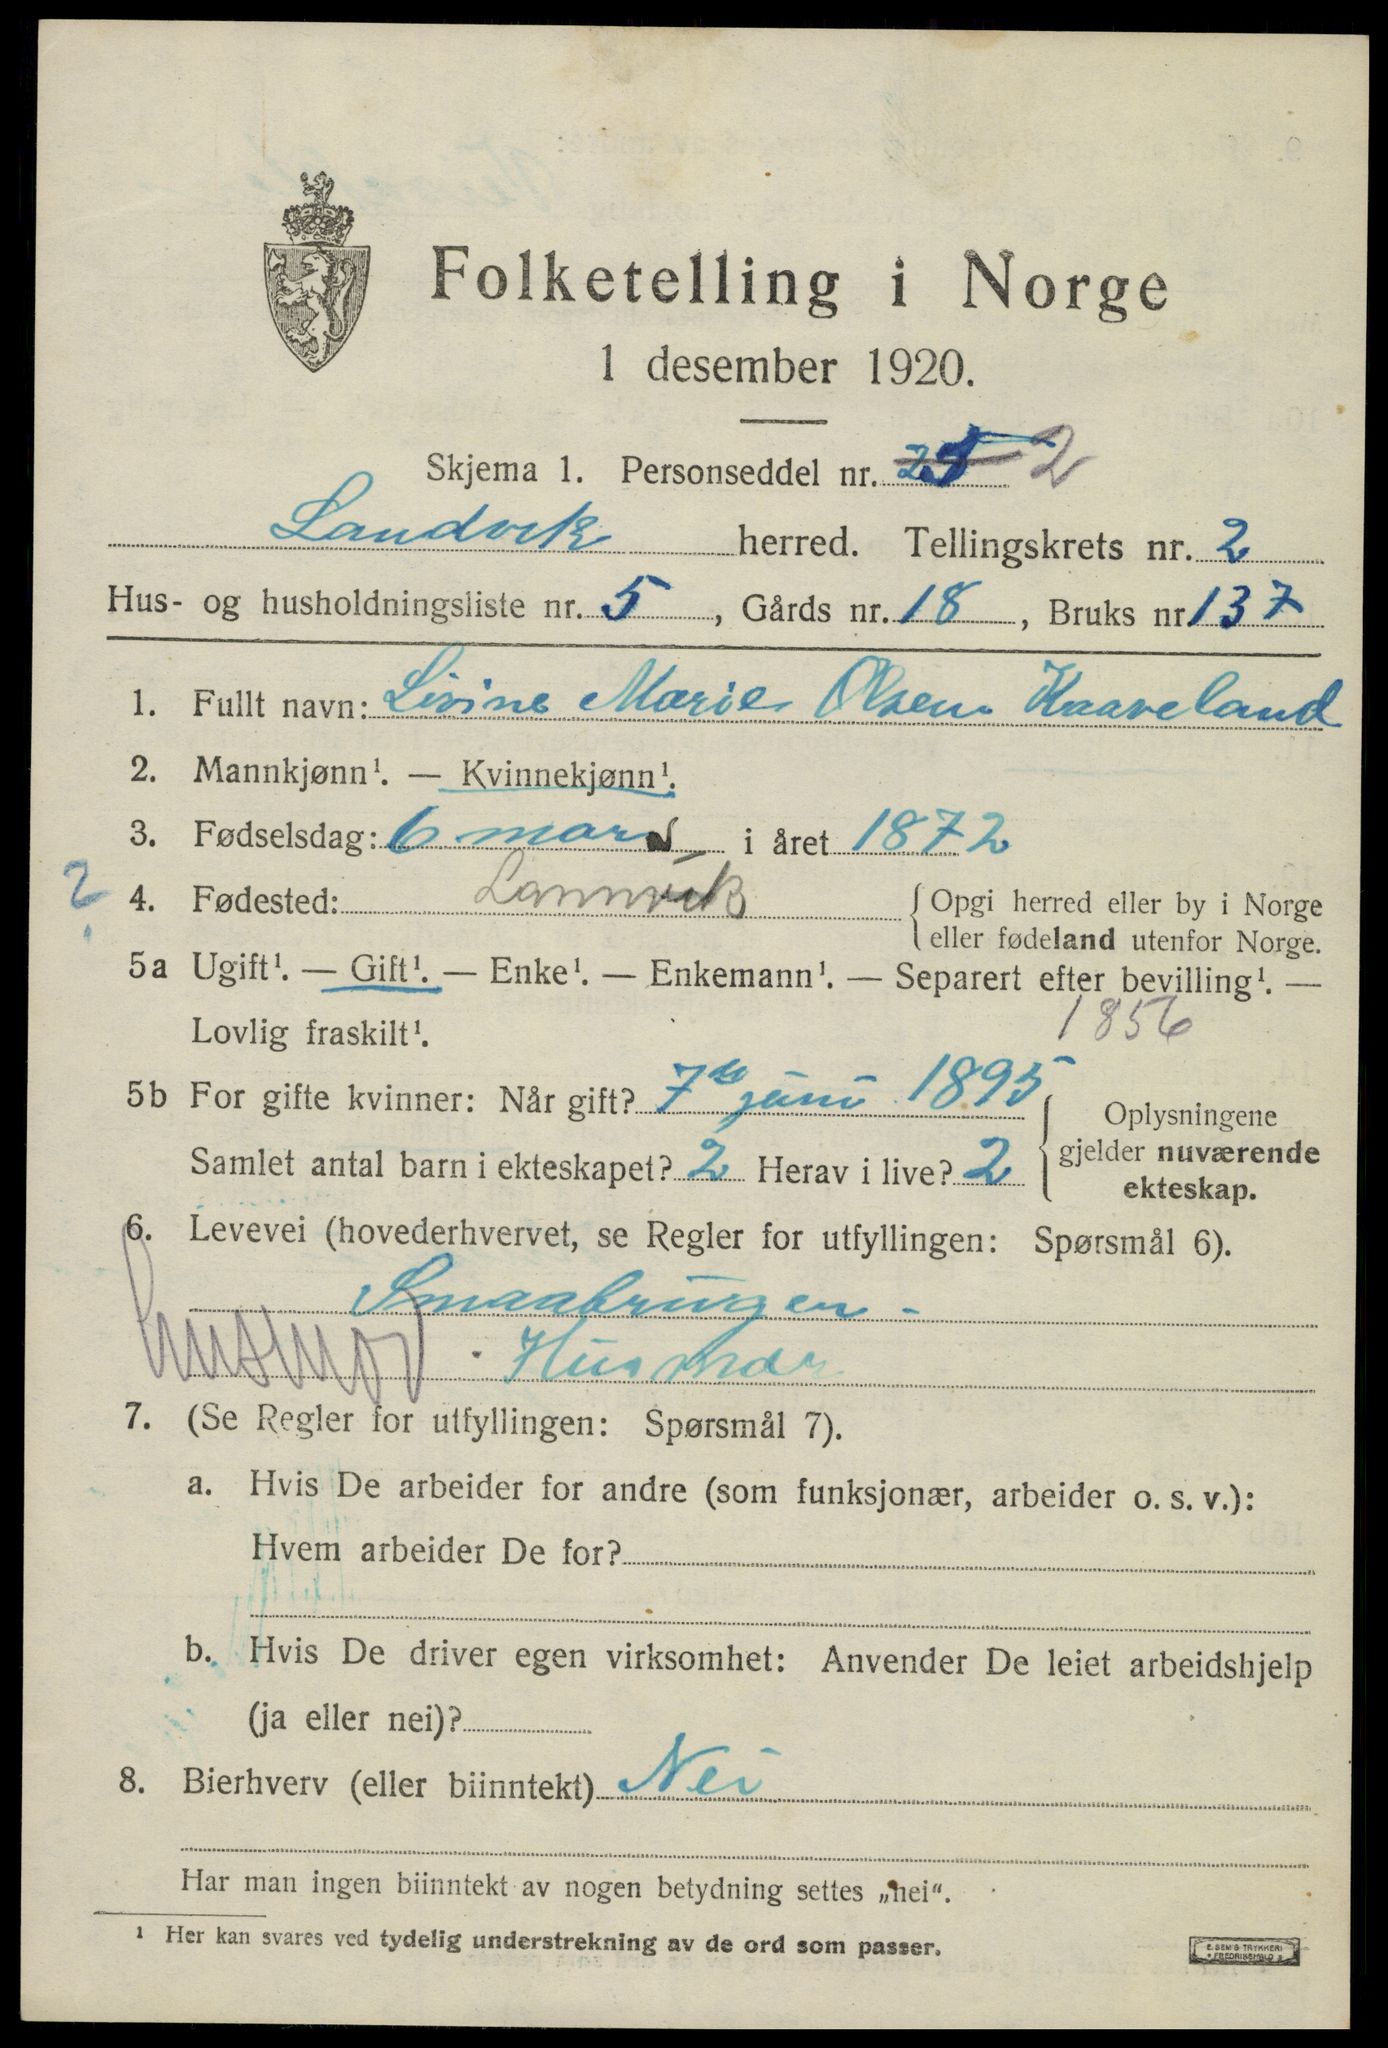 Folketelling i Norge
1 desember 1920.
Skjema 1. Personseddel nr. 2
Landvik herred. Tellingskrets nr. 2
Hus- og husholdningsliste nr. 5, Gårds nr. 18, Bruks nr. 137
1. Fullt navn: Livine Marie Olsen Kaaveland
2. Mannkjønn¹. — Kvinnekjønn¹.
3. Fødselsdag: 6 mars i året 1872
? 4. Fødested: Lannvik { Opgi herred eller by i Norge
eller fødeland utenfor Norge.
5a Ugift¹. — Gift¹. — Enke¹. — Enkemann¹. — Separert efter bevilling¹. —
Lovlig fraskilt¹. 1856
5b For gifte kvinner: Når gift? 7de juni 1895
Samlet antal barn i ekteskapet? 2 Herav i live? 2
{ Oplysningene
gjelder nuværende
ekteskap.
6. Levevei (hovederhvervet, se Regler for utfyllingen: Spørsmål 6).
Smaabruger -
husmor Husmor
7. (Se Regler for utfyllingen: Spørsmål 7).
a. Hvis De arbeider for andre (som funksjonær, arbeider o. s. v.):
Hvem arbeider De for?
b. Hvis De driver egen virksomhet: Anvender De leiet arbeidshjelp
(ja eller nei)?
8. Bierhverv (eller biinntekt) Nei
Har man ingen biinntekt av nogen betydning settes „nei“.
¹ Her kan svares ved tydelig understrekning av de ord som passer.
E. SEM'S TRYKKERI
FREDRIKSHALD